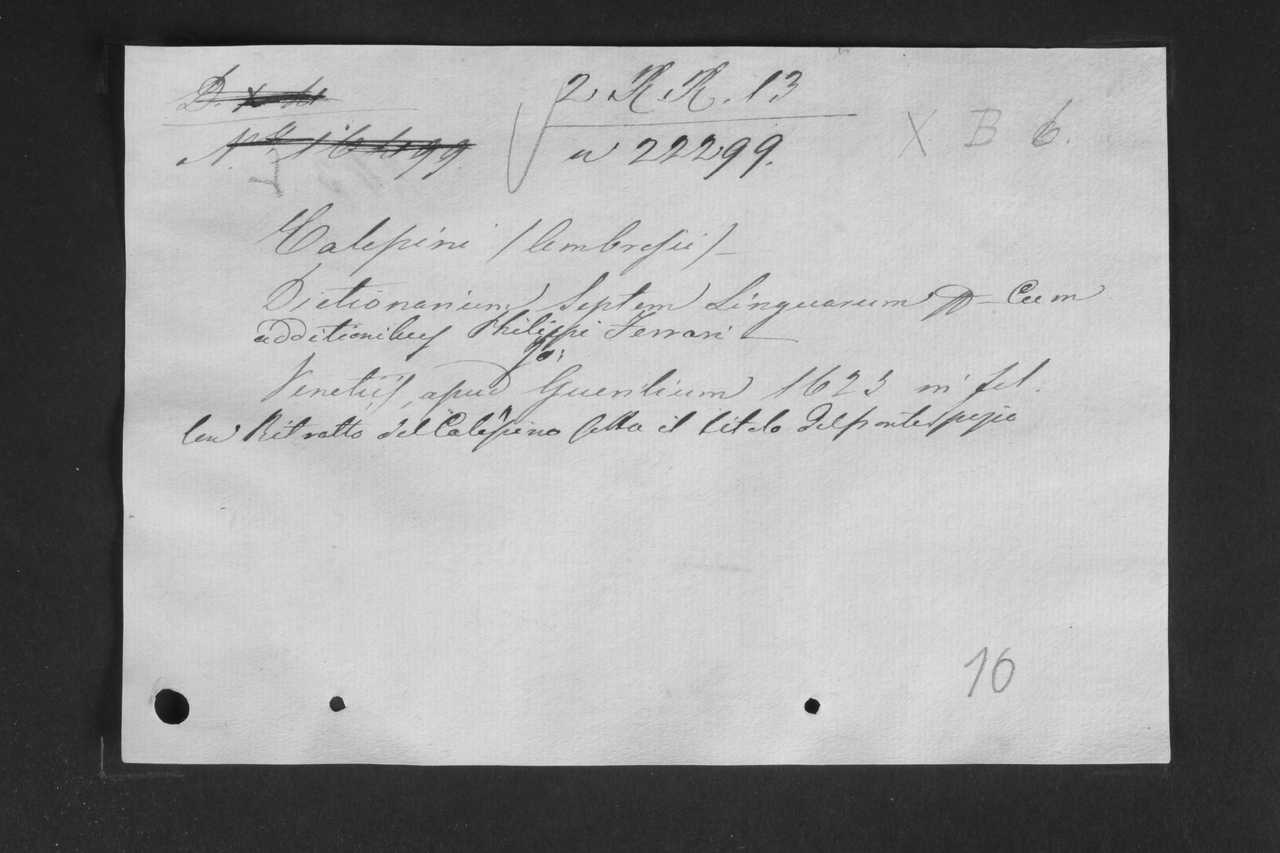 2 R R. 13
a 22299.
X B 6.
Calepini (Ambrosii) _
Dictionarium Septem Linguarum & - Cum
additionibus Philippi Ferrari
Jo:
Venetiis, apud Guerilium 1623 in fol.
Con Ritratto del Calepino sotto il titolo del frontespizio
16